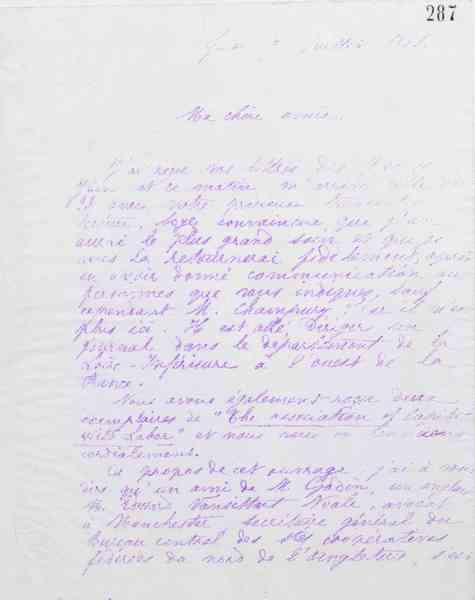 287
Juillet
Ma chère amie,
J'ai reçu vos lettres des
Juin et ce matin
23 avec votre précieux
Soyez convaincue que j'en
aurai le plus grand soin et que je
vous la retournerai fidèlement après
en avoir donné communication aux
personnes que vous indiquez, sauf
cependant M. Champury car il n'est
plus ici. Il est allé diriger un
journal dans le département de la
Loire-Inférieure à l'ouest de la
France.
Nous avons également reçu deux
exemplaires de "The association of Capital
with Labor" et nous vous en remercions
cordialement.
A propos de cet ouvrage j'ai à vous
dire qu'un ami de M. Godin, un anglais
M. Edward Vansittart Neale, avocat
à Manchester secrétaire général du
Bureau central des Stés coopératives
fédérées du nord de l'Angleterre, s'est